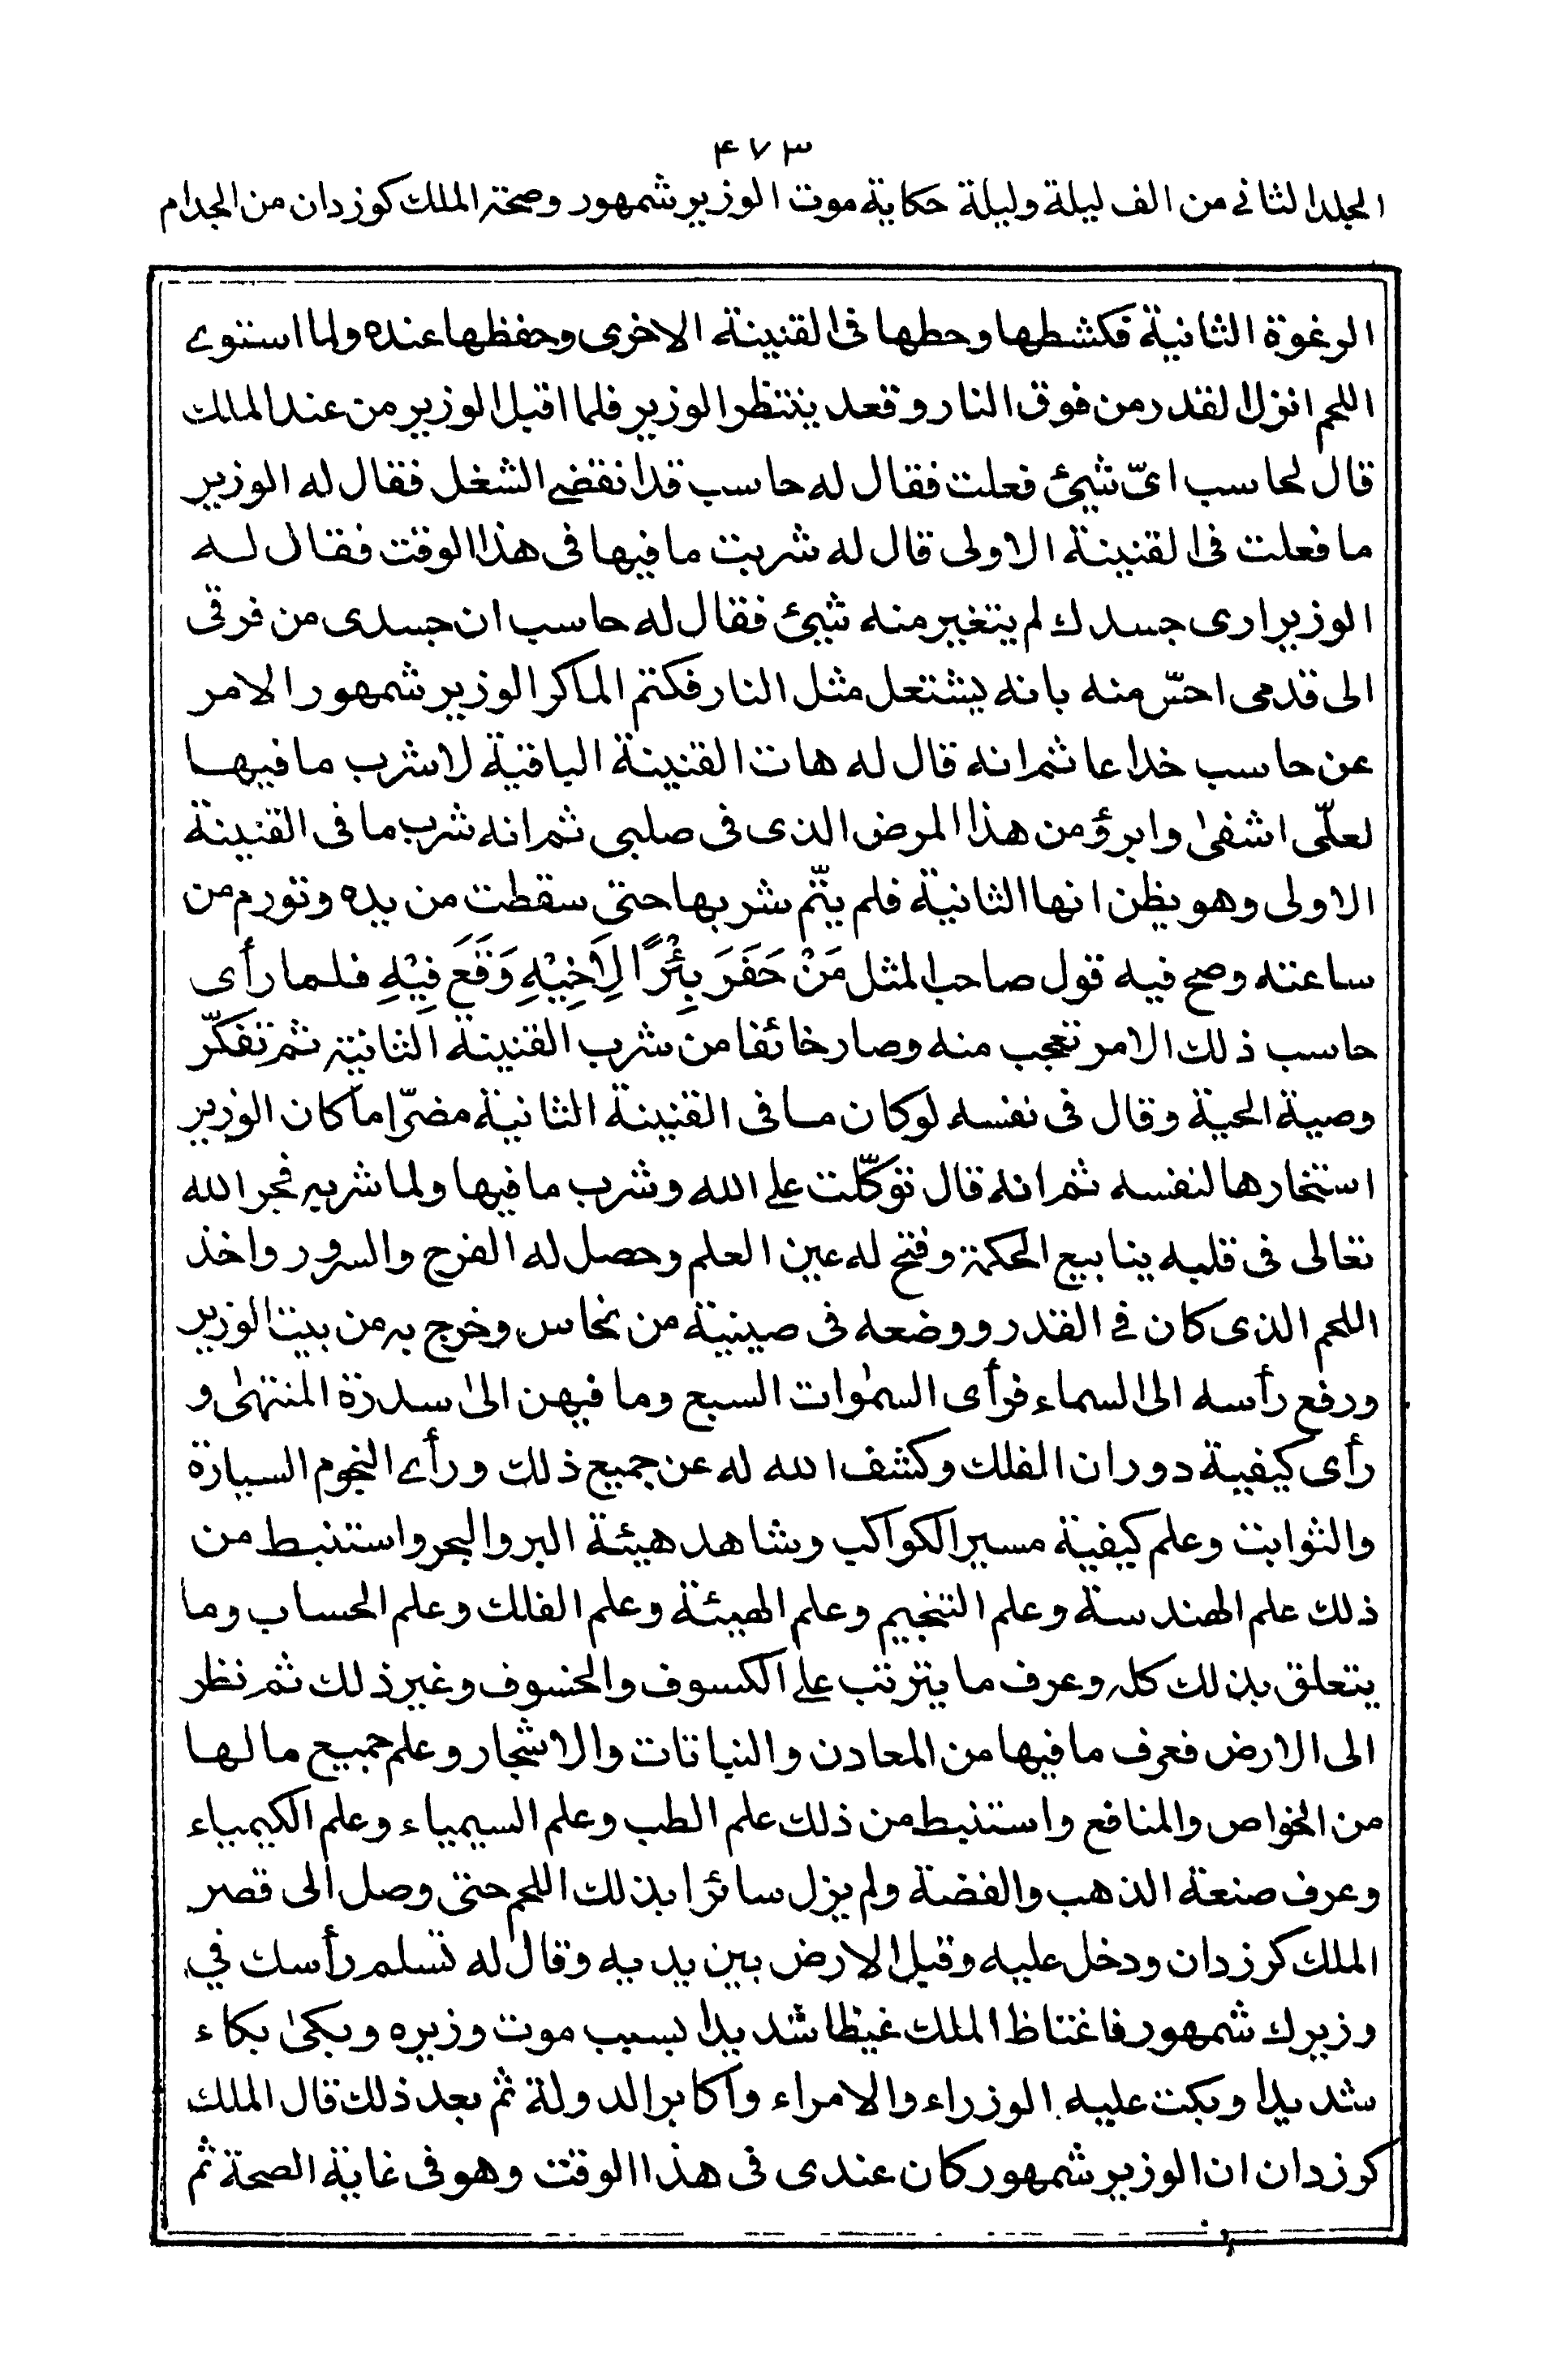 ۴۷۳
المجلد الثانے من الف ليلة وليلة حكاية موت الوزير شمهور وصحة الملك كوزدان من الجدام
الرغوة الثانية فكشطها وحطها فى القنينة الاخرى وحفظها عنده ولما استوے
اللحم انزل القدر من فوق النار وقعد ينتظر الوزير فلما اقبل الوزير من عند الملك
قال لحاسب اىّ شيئ فعلت فقال له حاسب قد انقضے الشغل فقال له الوزير
ما فعلت فى القنينة الاولى قال له شربت ما فيها فى هذا الوقت فقال له
الوزير ارى جسدك لم يتغير منه شيئ فقال له حاسب ان جسدى من فرقى
الى قدمى احسّ منه بانه يشتعل مثل النار فكتم الماكر الوزير شمهور الامر
عن حاسب خداعا ثم انه قال له هات القنينة الباقية لاشرب ما فيها
لعلّى اشفىٰ وابرؤ من هذا المرض الذى فى صلبى ثم انه شرب ما فى القنينة
الاولى وهو يظن انها الثانية فلم يتّم شربها حتى سقطت من يده وتورم من
ساعته وصح فيه قول صاحب المثل مَنْ حَفَرَ بِئْرًا لِاَخِيْهِ وَقَعَ فِيْهِ فلما رأى
حاسب ذلك الامر تعجب منه وصار خائفا من شرب القنينة الثانية ثم تفكّر
وصية الحية وقال فى نفسه لو كان ما فى القنينة الثانية مضرّا ما كان الوزير
استخارها لنفسه ثم انه قال توكّلت علے الله وشرب ما فيها ولما شربه فجر الله
تعالى فى قلبه ينابيع الحكمة وفتح له عين العلم وحصل له الفرج والسرور واخذ
اللحم الذى كان فے القدر ووضعه فى صينية من نحاس وخرج به من بيت الوزير
ورفع رأسه الى السماء فرأى السمٰوات السبع وما فيهن الىٰ سدرة المنتهىٰ و
رأى كيفية دوران الفلك وكشف الله له عن جميع ذلك ورأے النجوم السيارة
والثوابت وعلم كيفية مسير الكواكب وشاهد هيئة البر والبحر واستنبط من
ذلك علم الهندسة وعلم التنجيم وعلم الهيئة وعلم الفلك وعلم الحساب وما
يتعلق بذلك كله وعرف ما يترتب علے الكسوف والخسوف وغير ذلك ثم نظر
الى الارض فعرف ما فيها من المعادن والنباتات والاشجار وعلم جميع ما لها
من الخواص والمنافع واستنبط من ذلك علم الطب وعلم السيمياء وعلم الكيمياء
وعرف صنعة الذهب والفضة ولم يزل سائرا بذلك اللحم حتى وصل الى قصر
الملك كرزدان ودخل عليه وقبل الارض بين يديه وقال له تسلم رأسك في
وزيرك شمهور فاغتاظ الملك غيظا شديدا بسبب موت وزيره وبكىٰ بكاء
شديدا وبكت عليه الوزراء والامراء واكابر الدولة ثم بعد ذلك قال الملك
كرزدان ان الوزير شمهور كان عندى فى هذا الوقت وهو فى غاية الصحة ثم